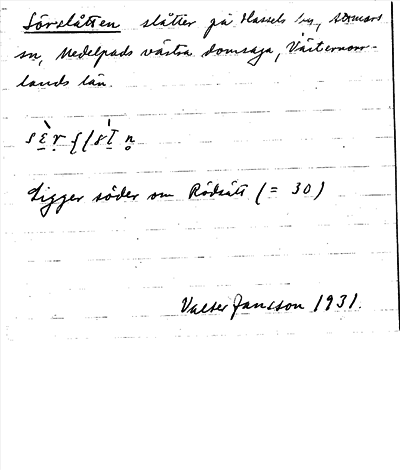 Sörslåtten slåtter på Hassels by, Stormars
sn, Medelpads västra domsaga, Västernorr-
lands län.
Ligger söder om Rödsått (= 30)
Valter Jansson 1931.